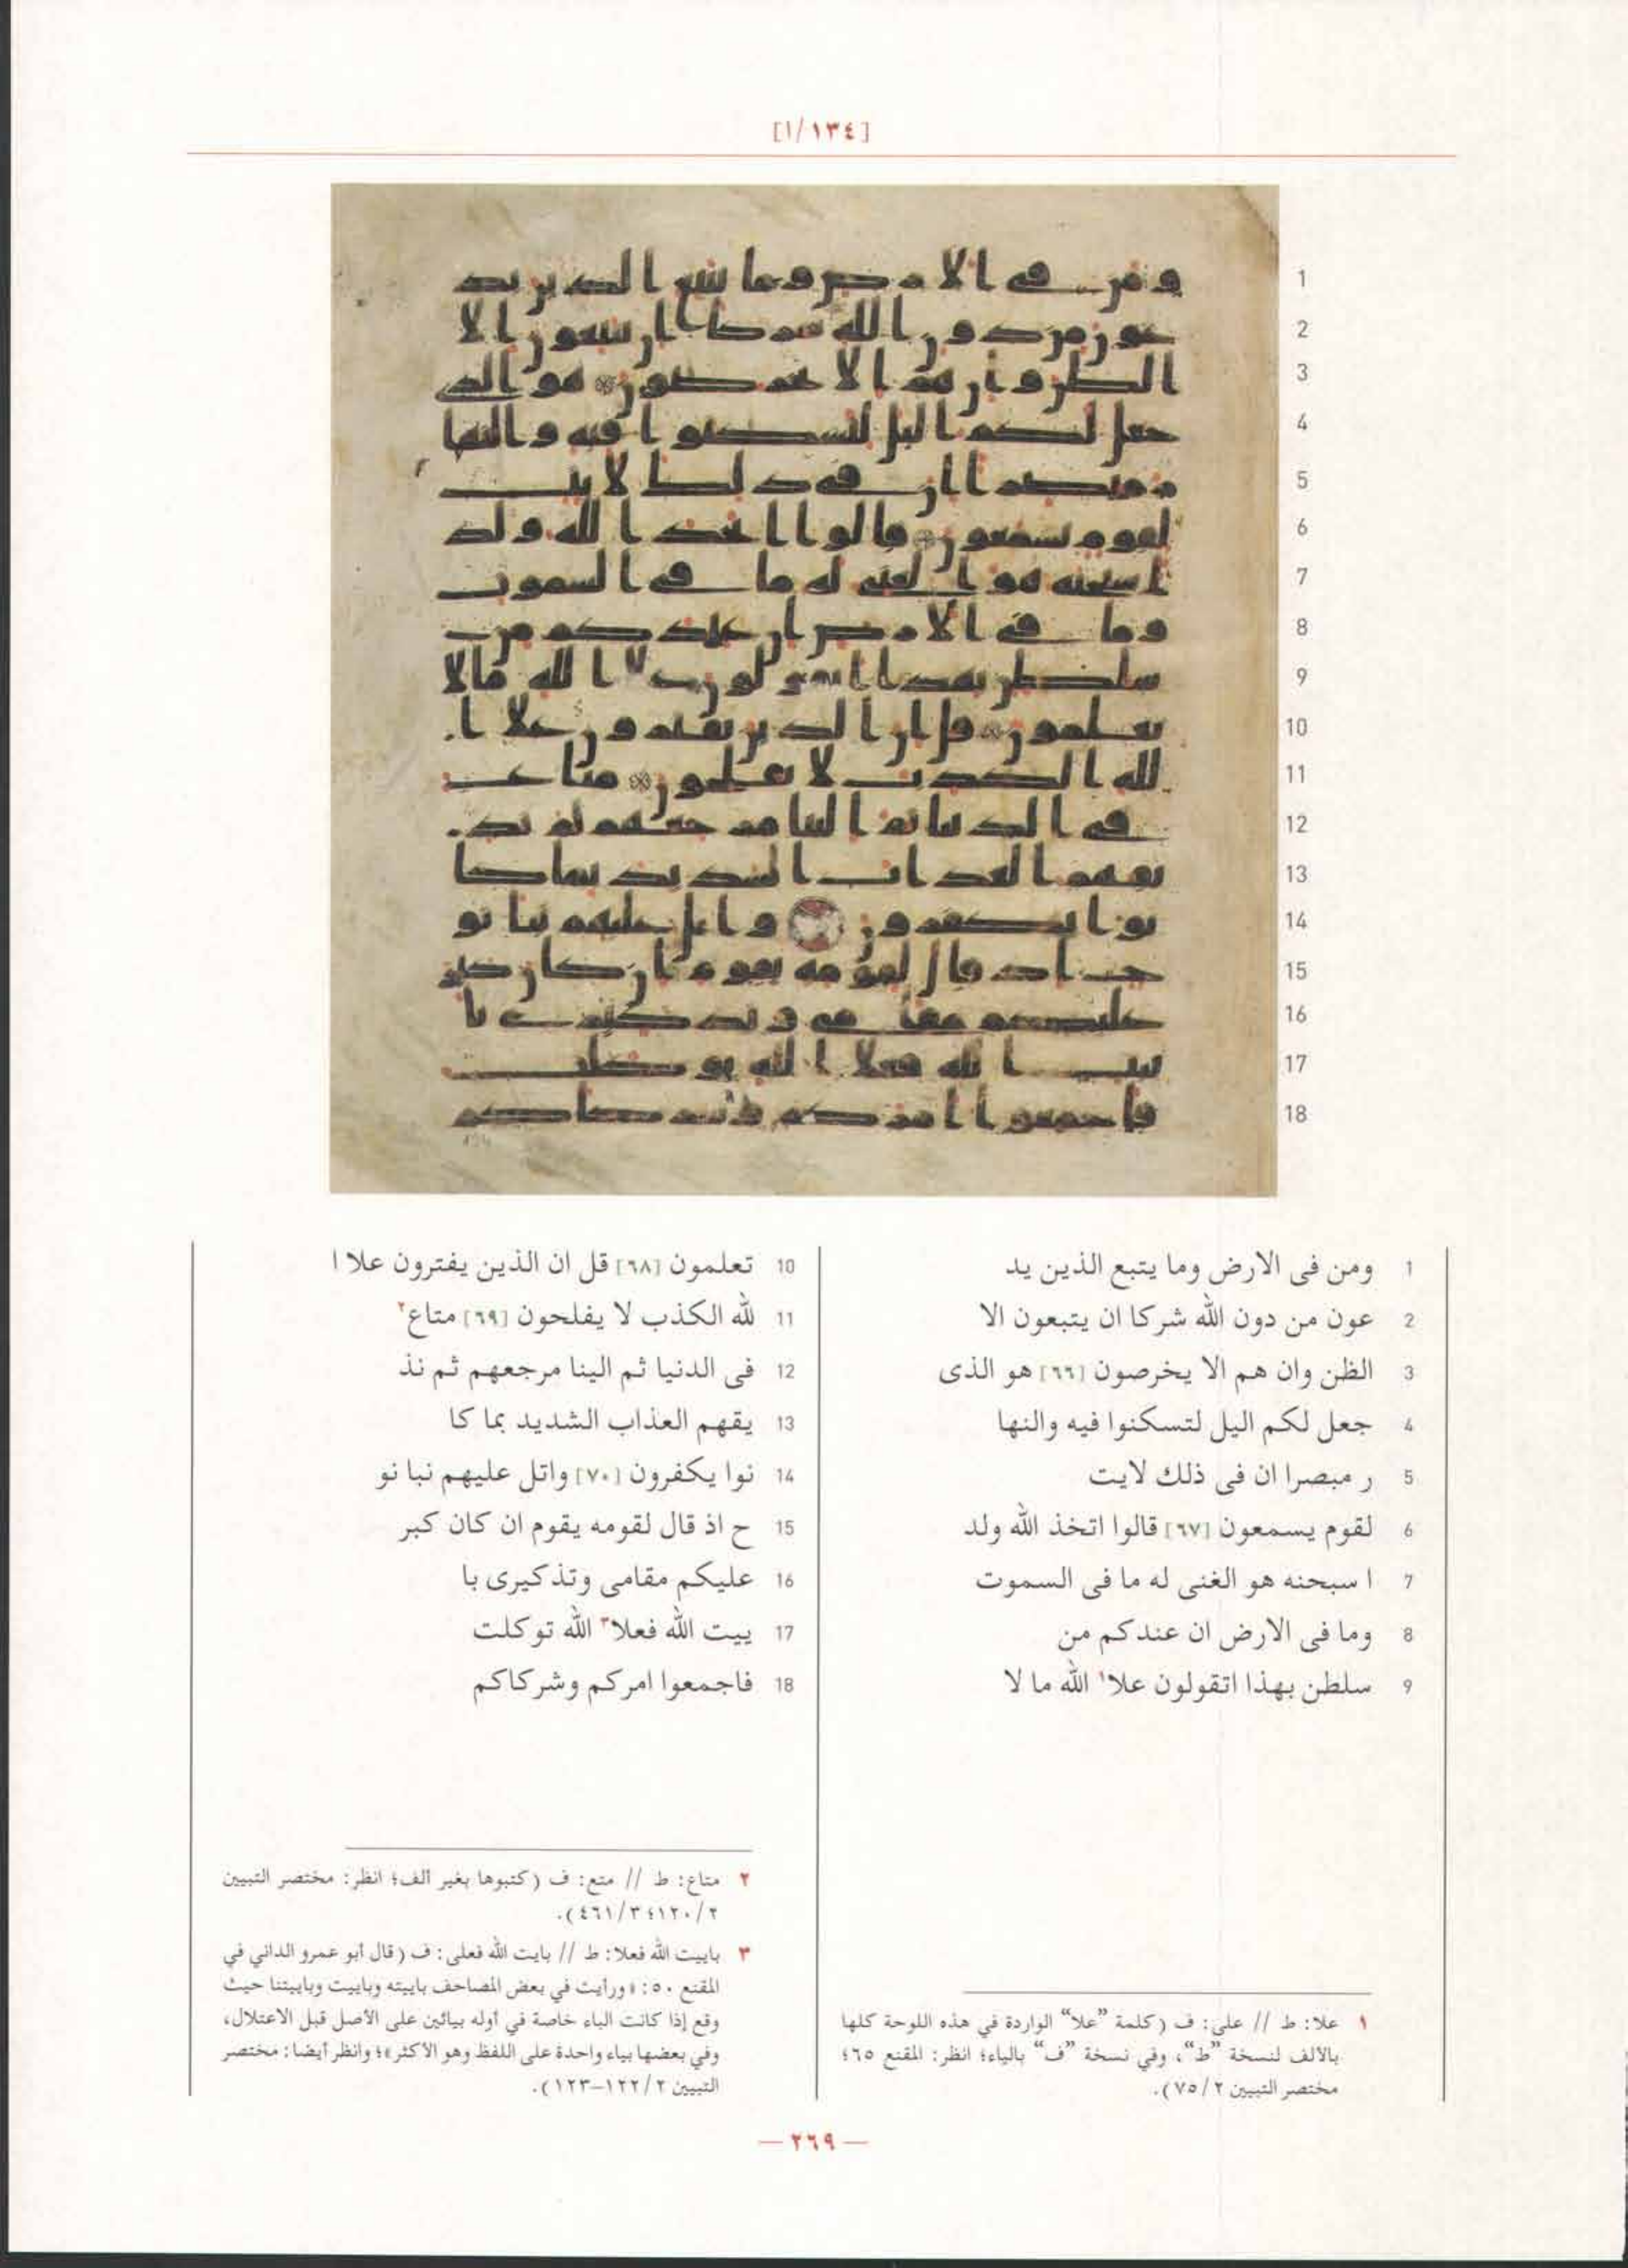 [١٣٤/ا]
1 ومن فى الارض وما يتبع الذين يد
2 عون من دون الله شركا ان يتبعون الا
3 الظن وان هم الا يخرصون [٦٦] هو الذى
4 جعل لكم اليل لتسكنوا فيه والنها
5 ر مبصرا ان فى ذلك لايت
6 لقوم يسمعون [٦٧] قالوا اتخذ الله ولد
7 ا سبحنه هو الغنى له ما فى السموت
8 وما فى الارض ان عندكم من
9 سلطن بهذا اتقولون علا١ الله ما لا
10 تعلمون [٦٨] قل ان الذين يفترون علا ا
11 لله الكذب لا يفلحون [٦٩] متاع٢
12 فى الدنيا ثم الينا مرجعهم ثم نذ
13 يقهم العذاب الشديد بما كا
14 نوا يكفرون [٧٠] واتل عليهم نبا نو
15 ح اذ قال لقومه يقوم ان كان كبر
16 عليكم مقامى وتذكيرى با
17 ييت الله فعلا٣ الله توكلت
18 فاجمعوا امركم وشركاكم
١ علا: ط // على: ف (كلمة ”علا“ الواردة في هذه اللوحة كلها
بالألف لنسخة ”ط“، وفي نسخة ”ف“ بالياء؛ انظر: المقنع ٦٥؛
مختصر التبيين ٧٥/٢).
٢ متاع: ط // متع: ف (كتبوها بغير ألف؛ انظر: مختصر التبيين
١٢٠/٢؛ ٤٦١/٣).
٣ باييت الله فعلا: ط // بايت الله فعلى: ف (قال أبو عمرو الداني في
المقنع ٥٠: «ورأيت في بعض المصاحف باييته وباييت وباييتنا حيث
وقع إذا كانت الباء خاصة في أوله بيائين على الأصل قبل الاعتلال،
وفي بعضها بياء واحدة على اللفظ وهو الأكثر»؛ وانظر أيضا: مختصر
التبيين ١٢٢/٢–١٢٣).
— ٢٦٩ —